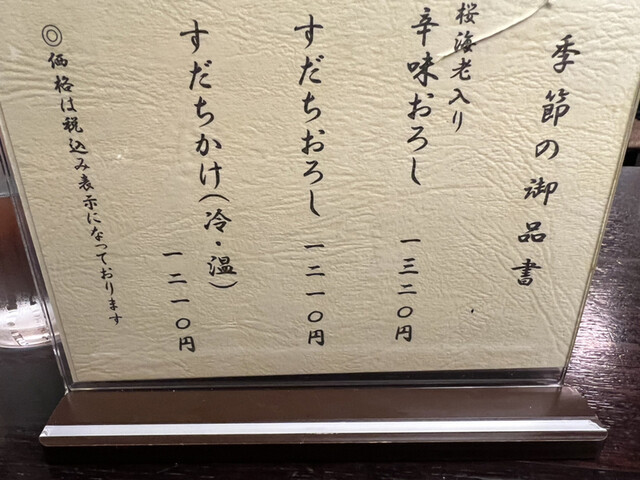 季節の御品書
桜海老入り
辛味おろし
一三二〇円
すだちおろし 一二一〇円
すだちかけ(冷・温)
一二一〇円
◎価格は税込み表示になっております